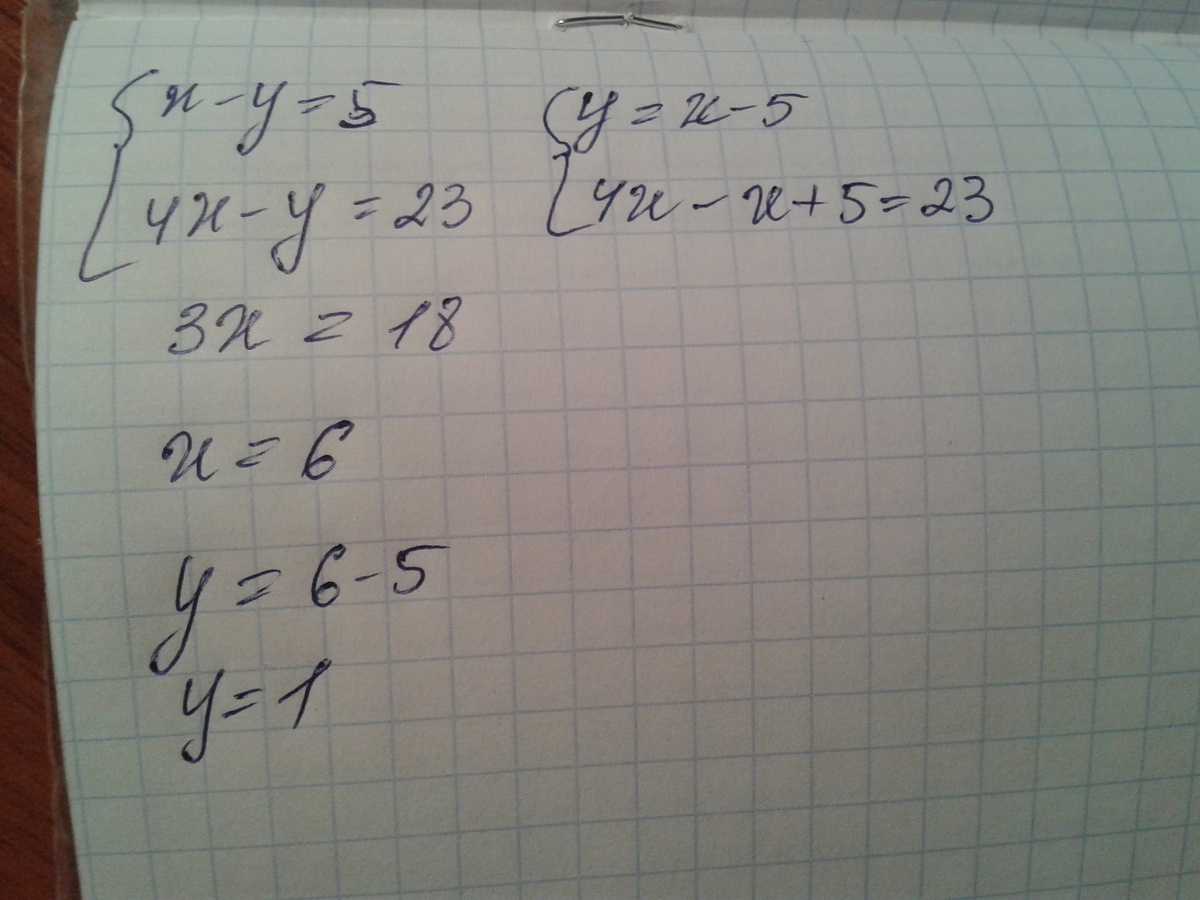 x-y=5
4x-y=23
y=x-5
4x-x+5=23
3x=18
x=6
y=6-5
y=1